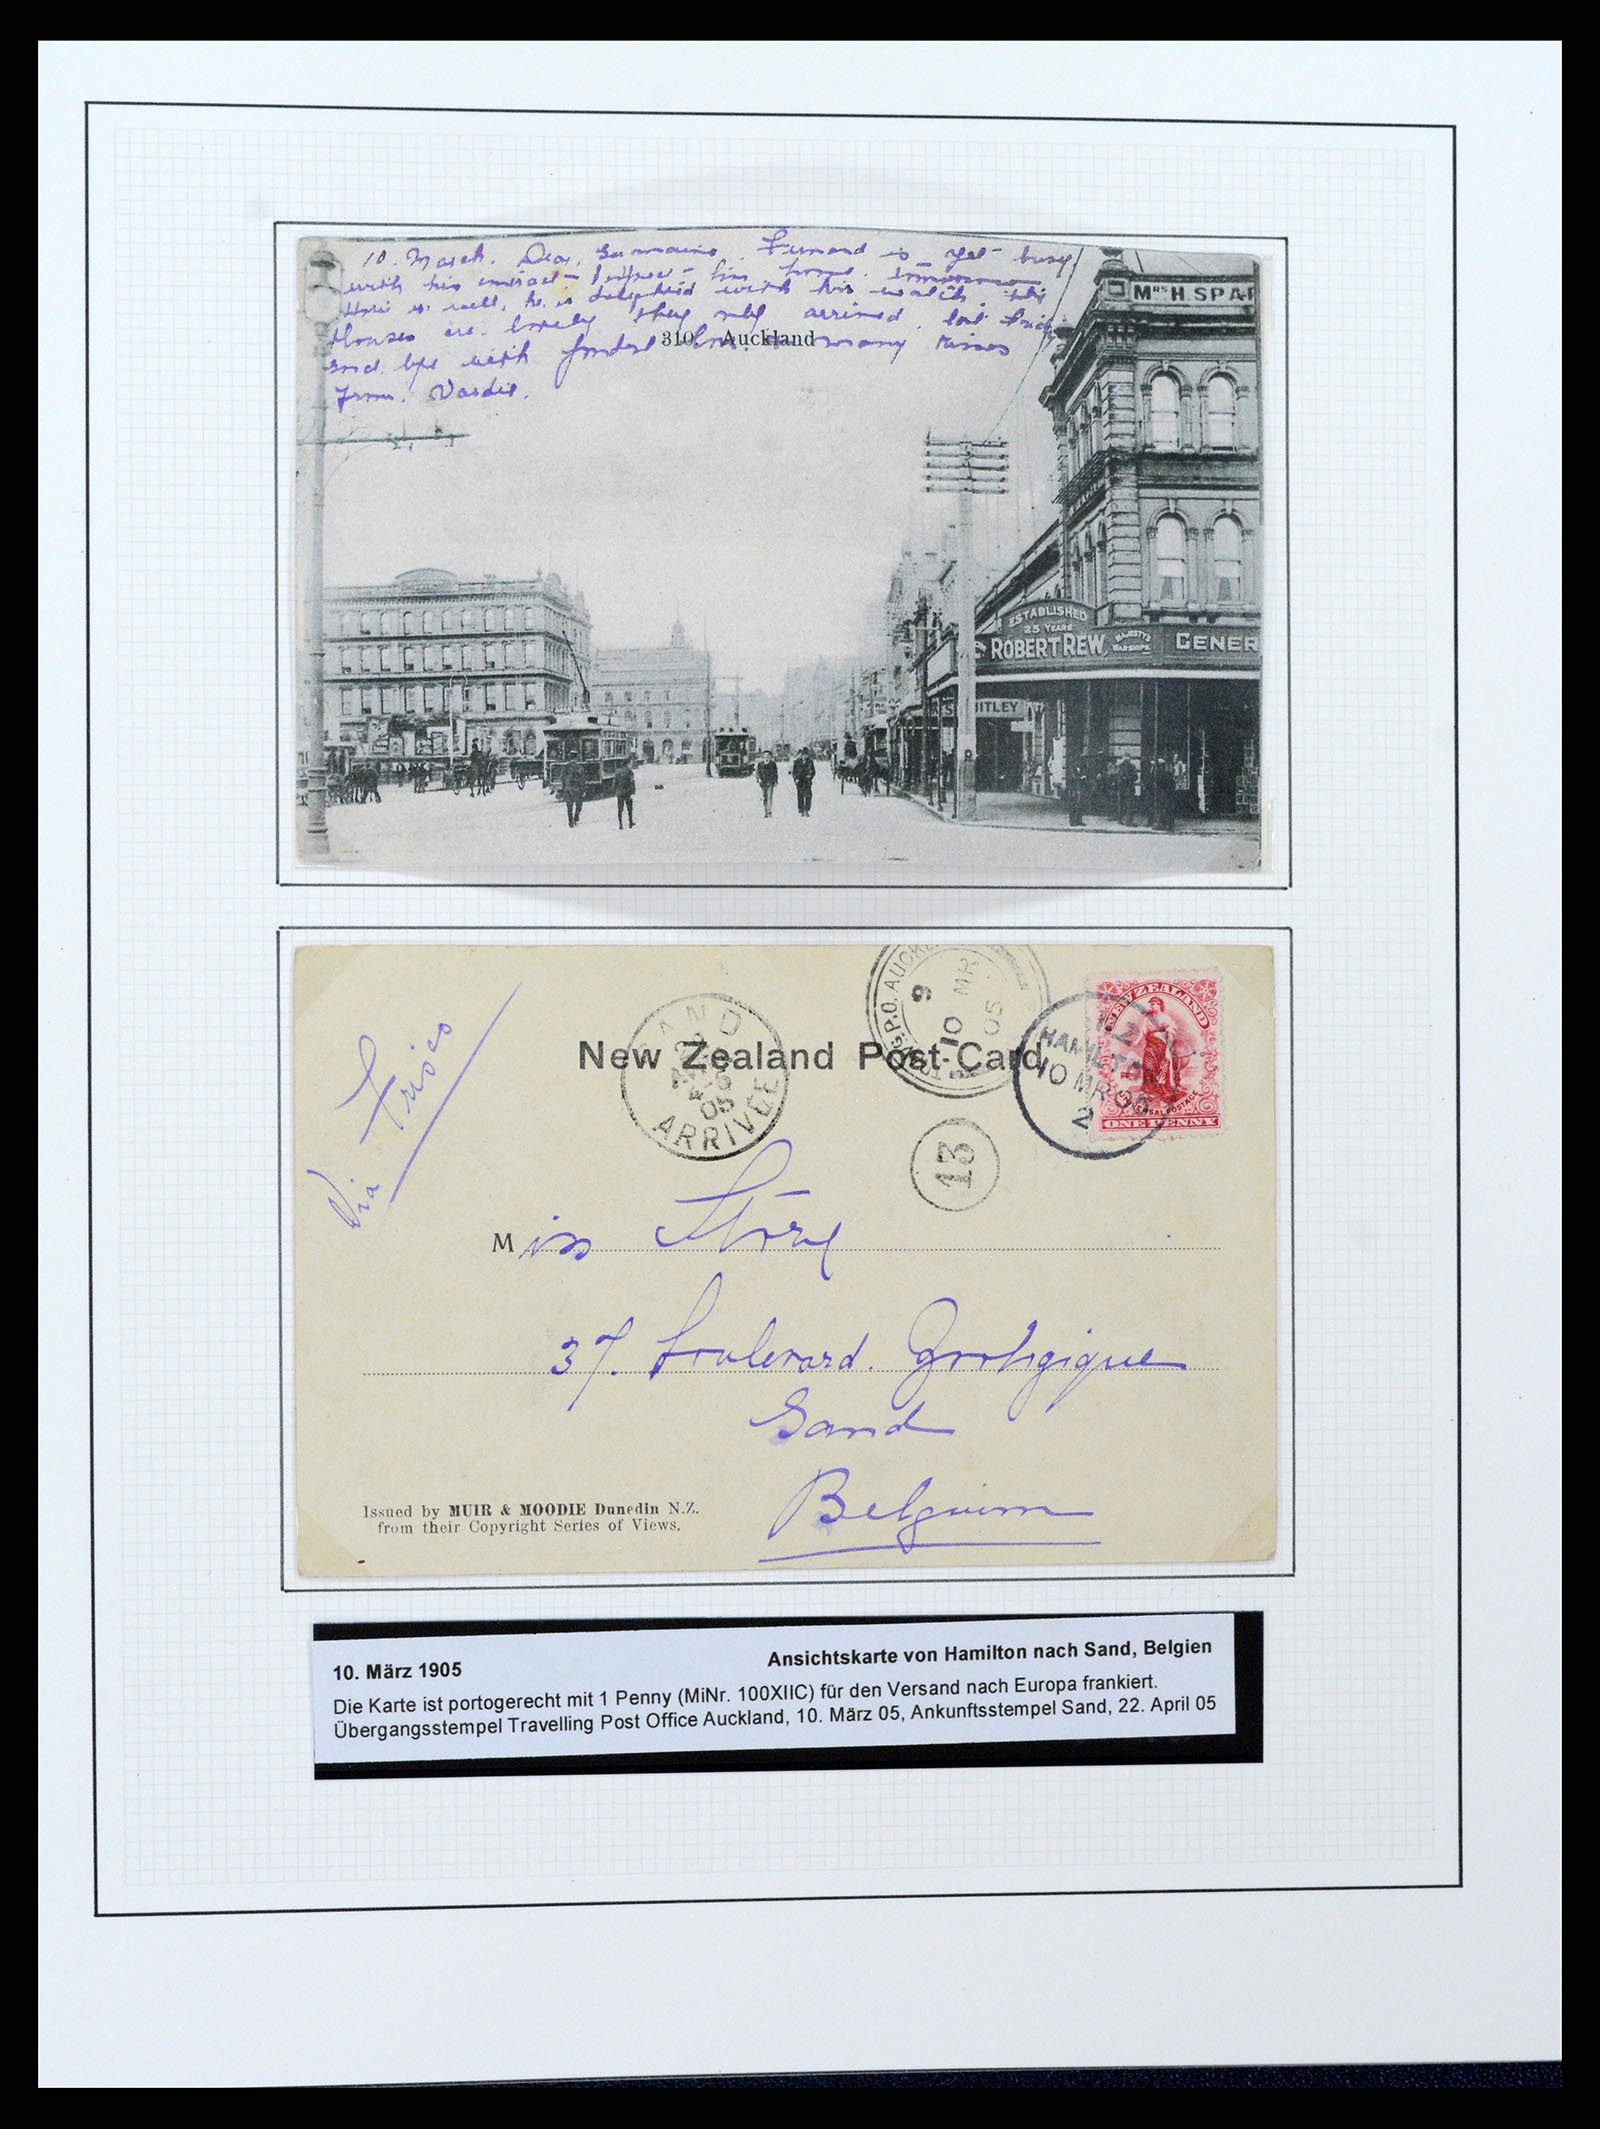 10. March. Dear Germaine. Fernand is yet busy
with his
well, he is delighted with his watch. the
blouses are lovely they only arrived, last Friday
and bye with fondest love & many kisses
from. Vardie.
310. Auckland
MRS H. SPAR
ESTABLISHED
25 YEARS
ROBERT REW,
GENER
ITLEY
New Zealand Post Card
Via Frisco
GAND
22
AVRIL
05
ARRIVÉE
G.P.O. AUCKL
9
10 MR
05
13
HAMILTON
10 MR 05
2
NEW ZEALAND
UNIVERSAL POSTAGE
ONE PENNY
Miss Story
37. boulevard.
Gand
Belguim
Issued by MUIR & MOODIE Dunedin N.Z.
from their Copyright Series of Views.
10. März 1905 Ansichtskarte von Hamilton nach Sand, Belgien
Die Karte ist portogerecht mit 1 Penny (MiNr. 100XIIC) für den Versand nach Europa frankiert.
Übergangsstempel Travelling Post Office Auckland, 10. März 05, Ankunftsstempel Sand, 22. April 05